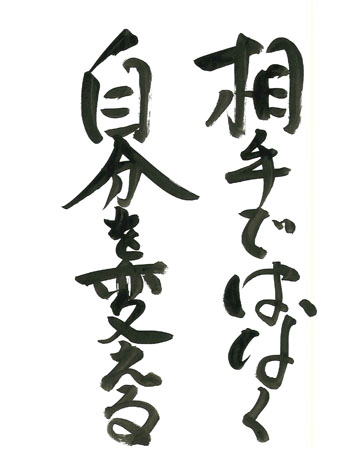 相手ではなく
自分を変える